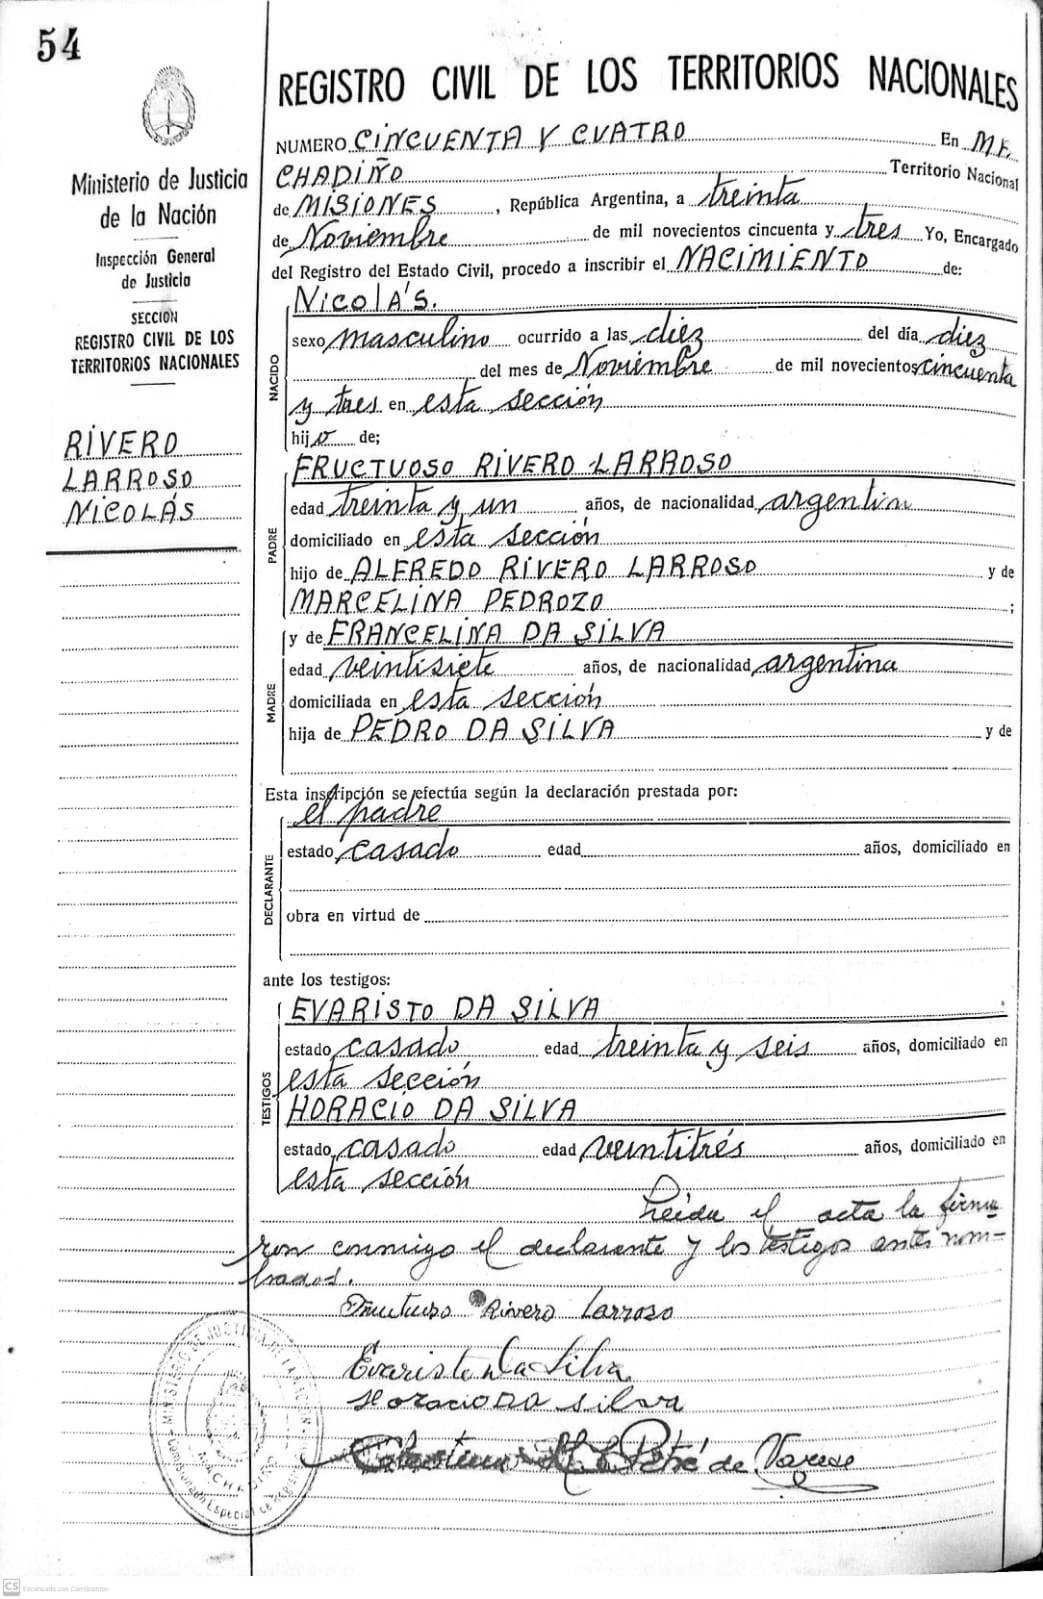 54
REGISTRO CIVIL DE LOS TERRITORIOS NACIONALES
Ministerio de Justicia
de la Nación
Inspección General
de Justicia
SECCION
REGISTRO CIVIL DE LOS
TERRITORIOS NACIONALES
RIVERO
LARROSO
NICOLÁS
NUMERO CINCUENTA Y CUATRO En ME
CHADIÑO Territorio Nacional
de MISIONES, República Argentina, a treinta
de Noviembre de mil novecientos cincuenta y tres Yo, Encargado
del Registro del Estado Civil, procedo a inscribir el NACIMIENTO de:
NACIDO
NICOLÁS.
sexo masculino ocurrido a las diez del día diez
del mes de Noviembre de mil novecientos cincuenta
y tres en esta sección
hijo de;
PADRE
FRUCTUOSO RIVERO LARROSO
edad treinta y un años, de nacionalidad argentin
domiciliado en esta sección
hijo de ALFREDO RIVERO LARROSO y de
MARCELINA PEDROZO ;
MADRE
y de FRANCELINA DA SILVA
edad veintisiete años, de nacionalidad argentina
domiciliada en esta sección
hija de PEDRO DA SILVA y de
Esta inscripción se efectúa según la declaración prestada por:
DECLARANTE
el padre
estado casado edad años, domiciliado en
obra en virtud de
ante los testigos:
TESTIGOS
EVARISTO DA SILVA
estado casado edad treinta y seis años, domiciliado en
esta sección
HORACIO DA SILVA
estado casado edad veintitrés años, domiciliado en
esta sección
Leida el acta la firma
ron conmigo el declarante y los testigos antes nom-
brados.
Fructuoso Rivero Larroso
Evaristo Da Silva
Horacio Da Silva
de Varese
MINISTERIO DE JUSTICIA DE LA NACION
CS Escaneado con CamScanner